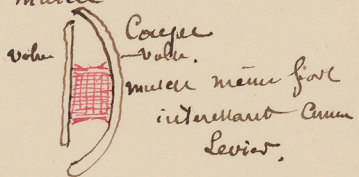 muscle
Coupe
valve
valve.
muscle même fort
interessant comme
Levier.